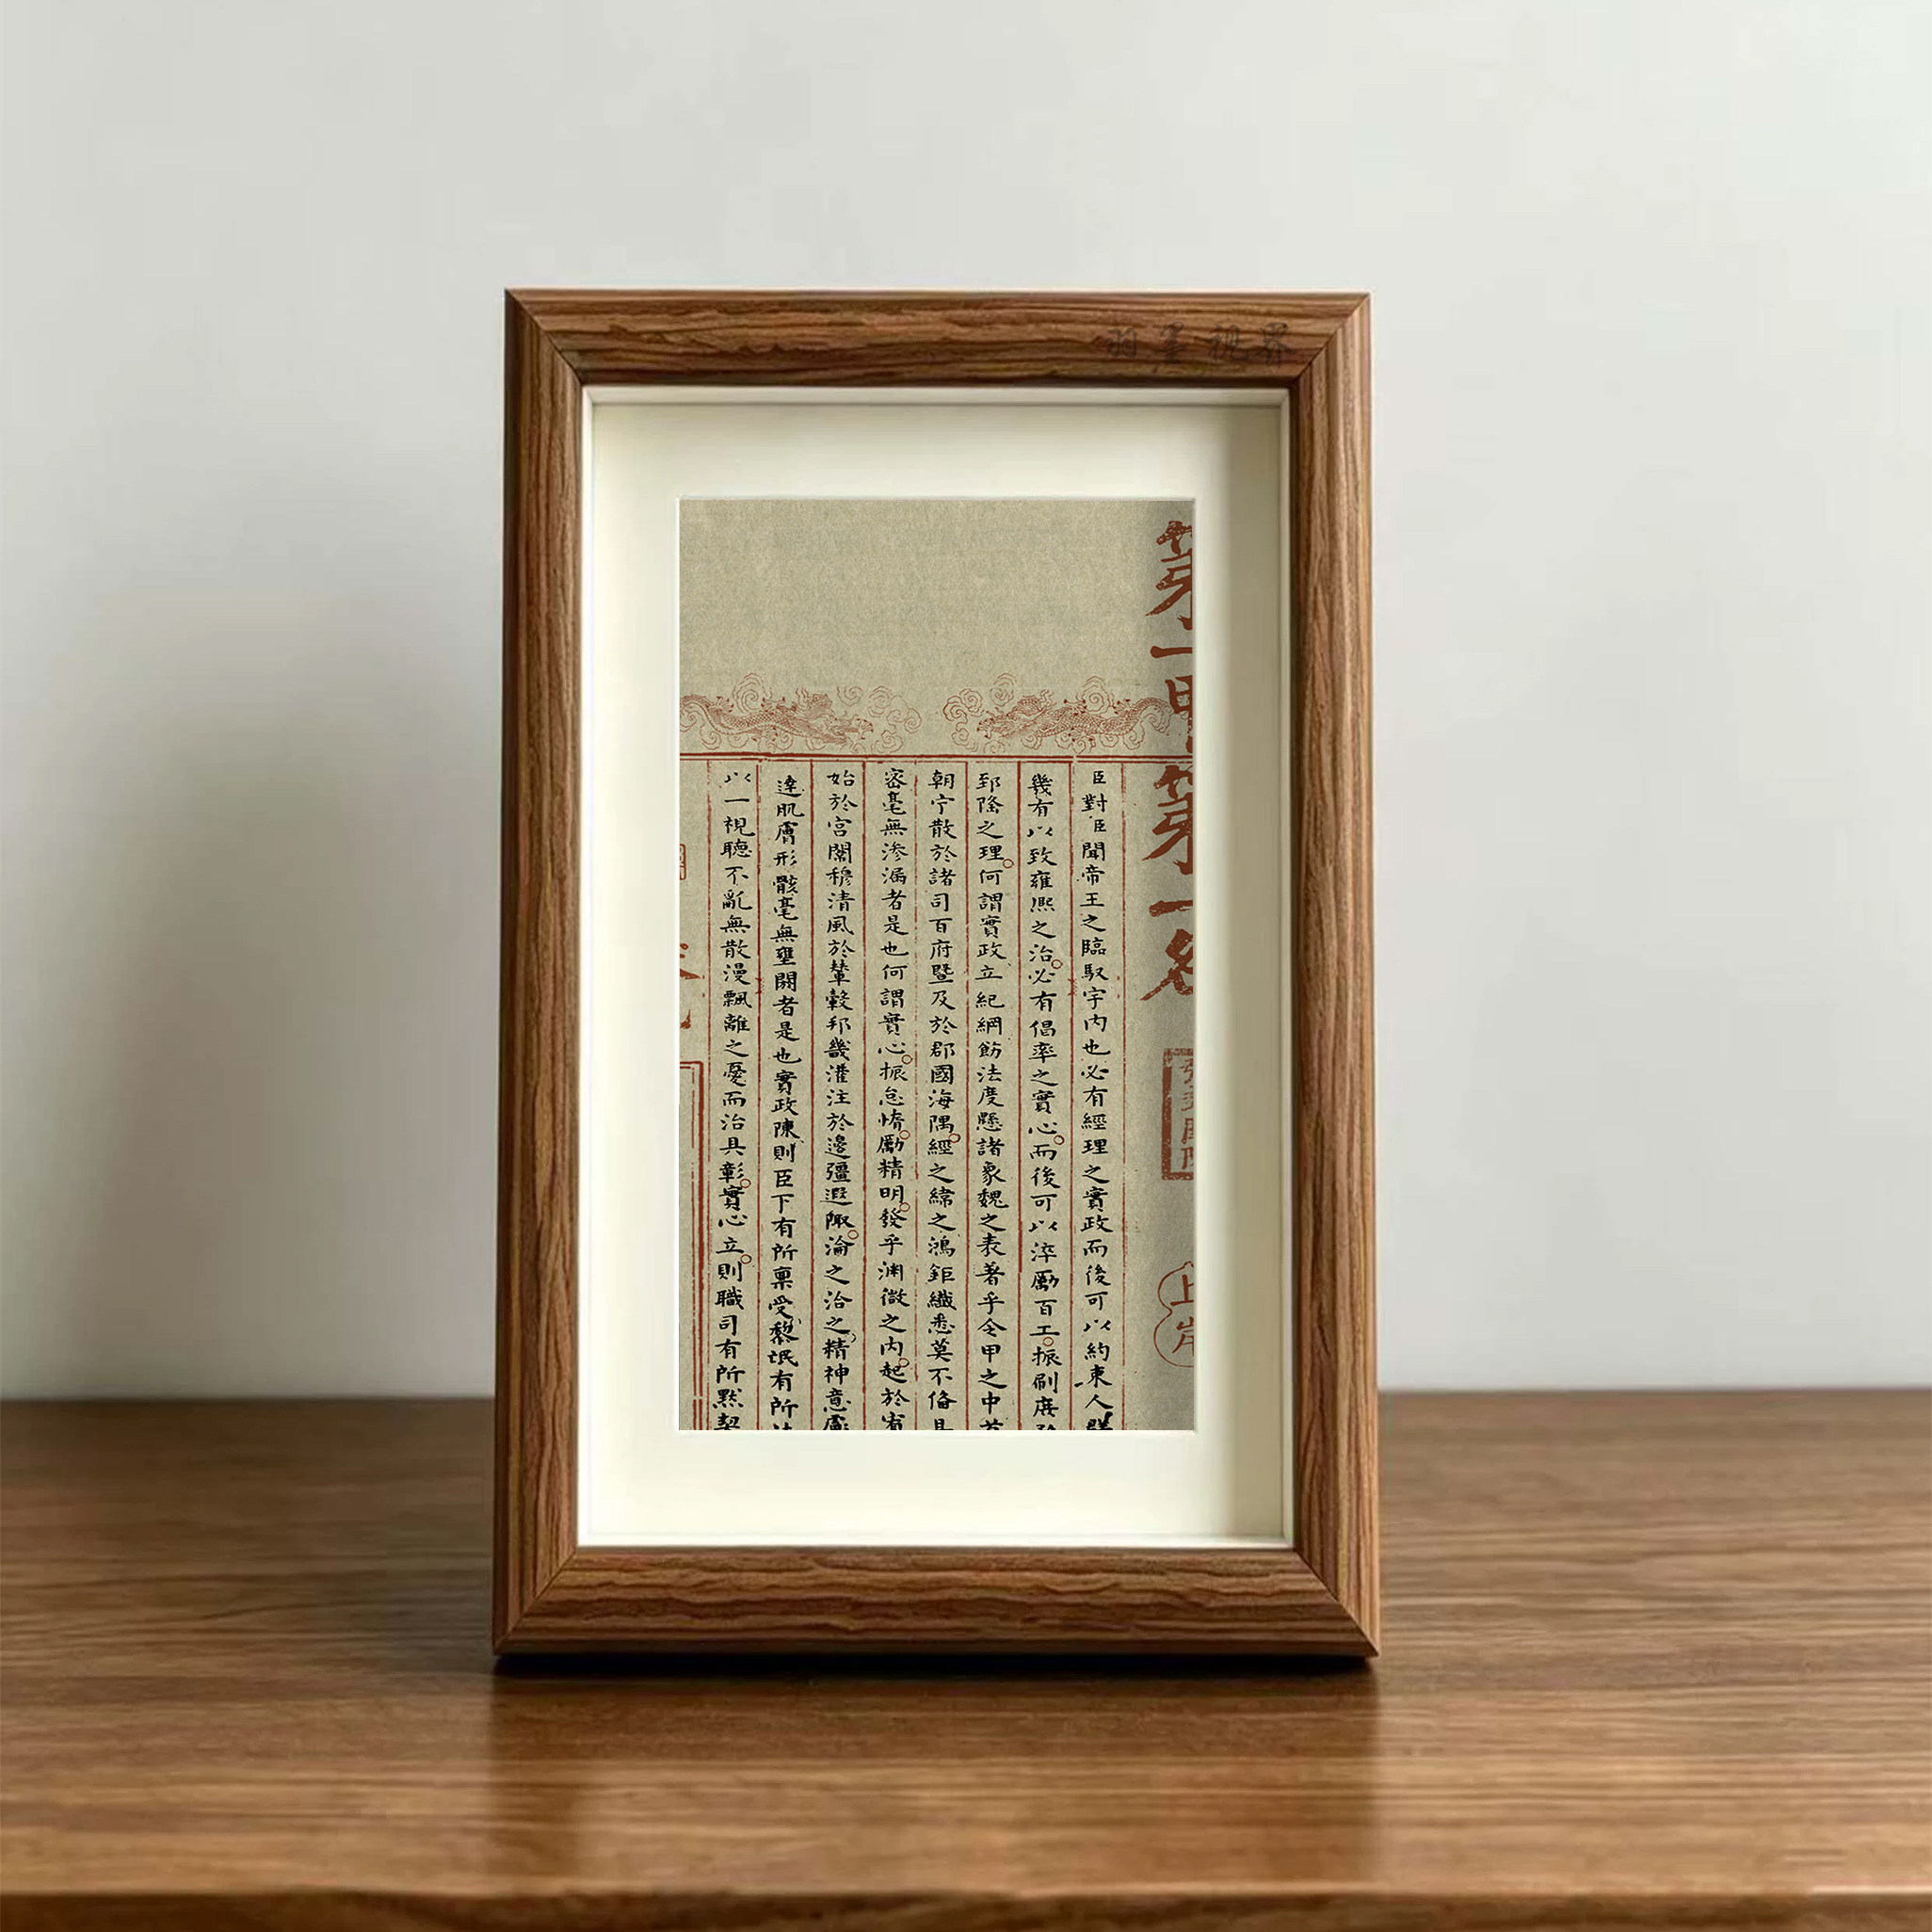 羽墨视界
第一甲第一名
上岸
臣對臣聞帝王之臨馭宇内也必有經理之實政而後可以約束人群
幾有以致雍熙之治必有倡率之實心而後可以淬勵百工振刷庶
郅隆之理何謂實政立紀綱飭法度懸諸象魏之表著乎令甲之中
朝宁散於諸司百府暨及於郡國海隅經之緯之鴻鉅纖悉莫不俻具
密毫無滲漏者是也何謂實心振怠惰勵精明發乎渊微之内起於宥
始於宮闈穆清風於輦轂邦畿灌注於邊彊遐陬淪之洽之精神意慮
達肌膚形骸毫無壅閼者是也實政陳則臣下有所禀受黎氓有所
以一視聽不亂無散漫飄離之憂而治具彰實心立則職司有所默契